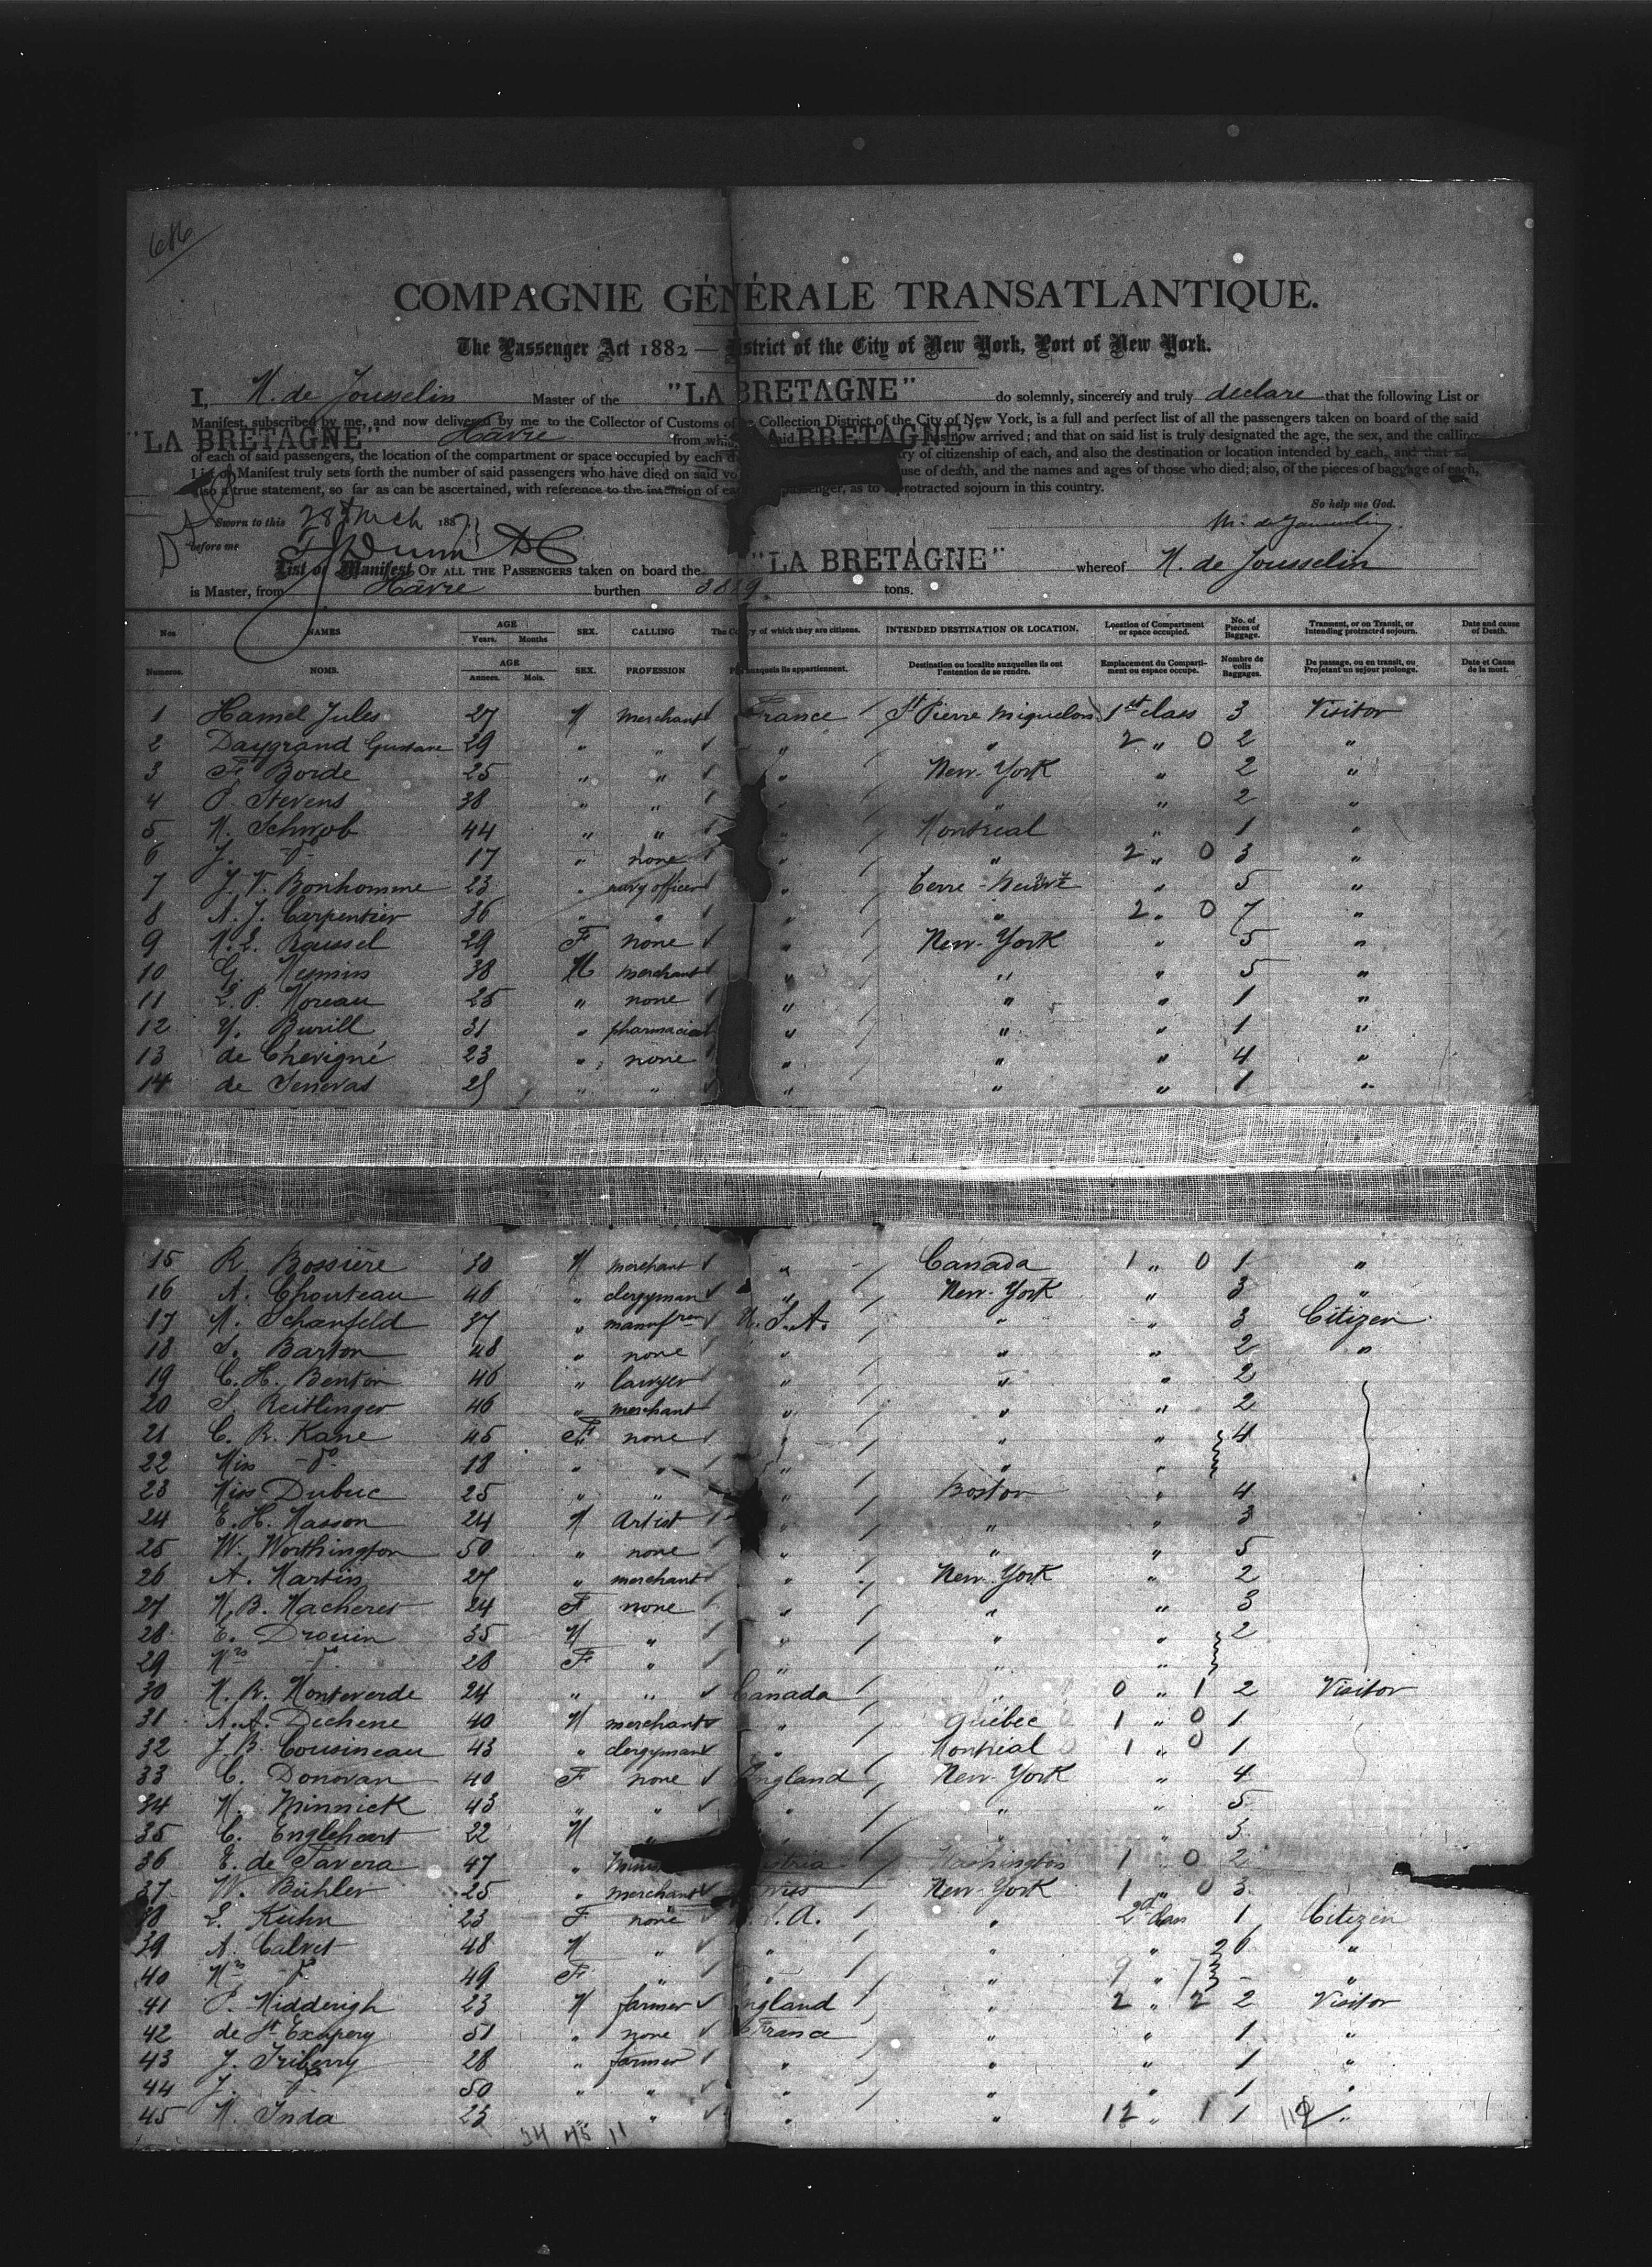 686
COMPAGNIE GÉNÉRALE TRANSATLANTIQUE.
The Passenger Act 1882 — District of the City of New York, Port of New York.
I, M. de Jousselin Master of the "LA BRETAGNE" do solemnly, sincerely and truly declare that the following List or
Manifest, subscribed by me, and now delivered by me to the Collector of Customs of the Collection District of the City of New York, is a full and perfect list of all the passengers taken on board of the said
"LA BRETAGNE" Hâvre from which said "LA BRETAGNE" has now arrived; and that on said list is truly designated the age, the sex, and the calling
of each of said passengers, the location of the compartment or space occupied by each ry of citizenship of each, and also the destination or location intended by each, and that sa
List or Manifest truly sets forth the number of said passengers who have died on said vo use of death, and the names and ages of those who died; also, of the pieces of baggage of each,
also a true statement, so far as can be ascertained, with reference to the intention of each passenger, as to protracted sojourn in this country.
So help me God.
Sworn to this 28th Mch 1887
M. de Jousselin
before me F J Dunn DC
List or Manifest OF ALL THE PASSENGERS taken on board the "LA BRETAGNE" whereof M. de Jousselin
is Master, from Hâvre burthen 3889 tons.
Nos NAMES AGE Years. Months SEX. CALLING The Co y of which they are citizens. INTENDED DESTINATION OR LOCATION. Location of Compartment or space occupied. No. of Pieces of Baggage. Transient, or on Transit, or Intending protracted sojourn. Date and cause of Death.
Numeros. NOMS. AGE Annees. Mois. SEX. PROFESSION auxquels ils appartiennent. Destination ou localite auxquelles ils ont l'entention de se rendre. Emplacement du Compartiment ou espace occupe. Nombre de colis Baggages. De passage, ou en transit, ou Projetant un sejour prolonge. Date et Cause de la mort.
1 Hamel Jules 27 M merchant France St Pierre Miquelon 1st class 3 Visitor
2 Daygrand Gustave 29 " " " " 2 " 0 2 "
3 F. Borde 25 " " " New-York " 2 "
4 P. Stevens 38 " " " " " 2 "
5 M. Schwob 44 " " " Montreal " 1 "
6 J. -do- 17 " none " " 2 " 0 3 "
7 J. V. Bonhomme 23 " navy officer " Terre-Neuve " 5 "
8 A. J. Carpentier 36 " " " " 2 " 0 7 "
9 M. E. Roussel 29 F none " New-York " 5 "
10 G. Neymin 38 M merchant " " " 5 "
11 E. P. Moreau 25 " none " " " 1 "
12 Y. Burill 31 " pharmacist " " " 1 "
13 de Chevigné 23 " none " " " 4 "
14 de Senevas 25 " " " " " 1 "
15 R. Bossière 30 M merchant " Canada 1 " 0 1 "
16 A. Chouteau 46 " clergyman " New-York " 3 "
17 M. Schænfeld 37 " manufrer U.S.A. " " 3 Citizen
18 S. Barton 48 " none " " " 2 "
19 C. H. Benton 46 " lawyer " " " 2
20 S. Reitlinger 46 " merchant " " " 2
21 C. R. Kane 45 F none " " " 4
22 Miss -do- 18 " " " " "
23 Miss Dubuc 25 " " " Boston " 4
24 E. H. Masson 24 M Artist " " " 3
25 W. Worthington 50 " none " " " 5
26 A. Martin 27 " merchant " New-York " 2
27 M. B. Macheret 24 F none " " " 3
28 E. Drouin 35 M " " " " 2
29 Mrs -do- 28 F " " " "
30 M. R. Monteverde 24 " " Canada " 0 " 1 2 Visitor
31 A. A. Dechene 40 M merchant " Québec 1 " 0 1
32 J. B. Cousineau 43 " clergyman " Montréal 1 " 0 1
33 C. Donovan 40 F none England New-York " 4
34 M. Minnick 43 " " " " " 5
35 C. Engleheart 22 M " " " " 3
36 E. de Tavera 47 " Minis stria Washington 1 " 0 2
37 W. Bühler 25 " merchant New-York 1 " 0 3
38 E. Kuhn 23 F none S.A. " 2d class 1 Citizen
39 A. Calvet 48 M " " " " 26 "
40 Mrs -do- 49 F " " " 9 " 7 - "
41 P. Midderigh 23 M farmer ngland " 2 " 2 2 Visitor
42 de St Exupery 51 " none France " " 1 "
43 J. Iriberry 28 " farmer " " " 1 "
44 J. -do- 50 " " " " " 1 "
45 M. Inda 23 " " " " 12 " 1 1 "
34 45 11